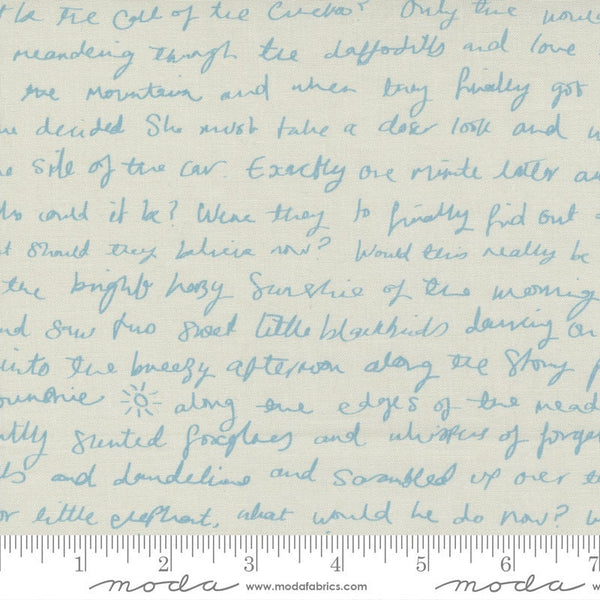 the Call of the Cuckoo? Only time would
meandering through the daffodills and love
the mountain and when they finally got
decided She must take a closer look and
side of the car. Exactly one minute later
could it be? Were they to finally find out
should they believe now? Would this really be
the bright hazy Sunshine of the morning
and saw two sweet little blackbirds dancing on
into the breezy afternoon along the Stony
along the edges of the
scented foxgloves and whispers of
and dandelions and Scrambled up over
little elephant, what would he do now?
1 2 3 4 5 6 7
moda www.modafabrics.com moda www.modafabrics.com